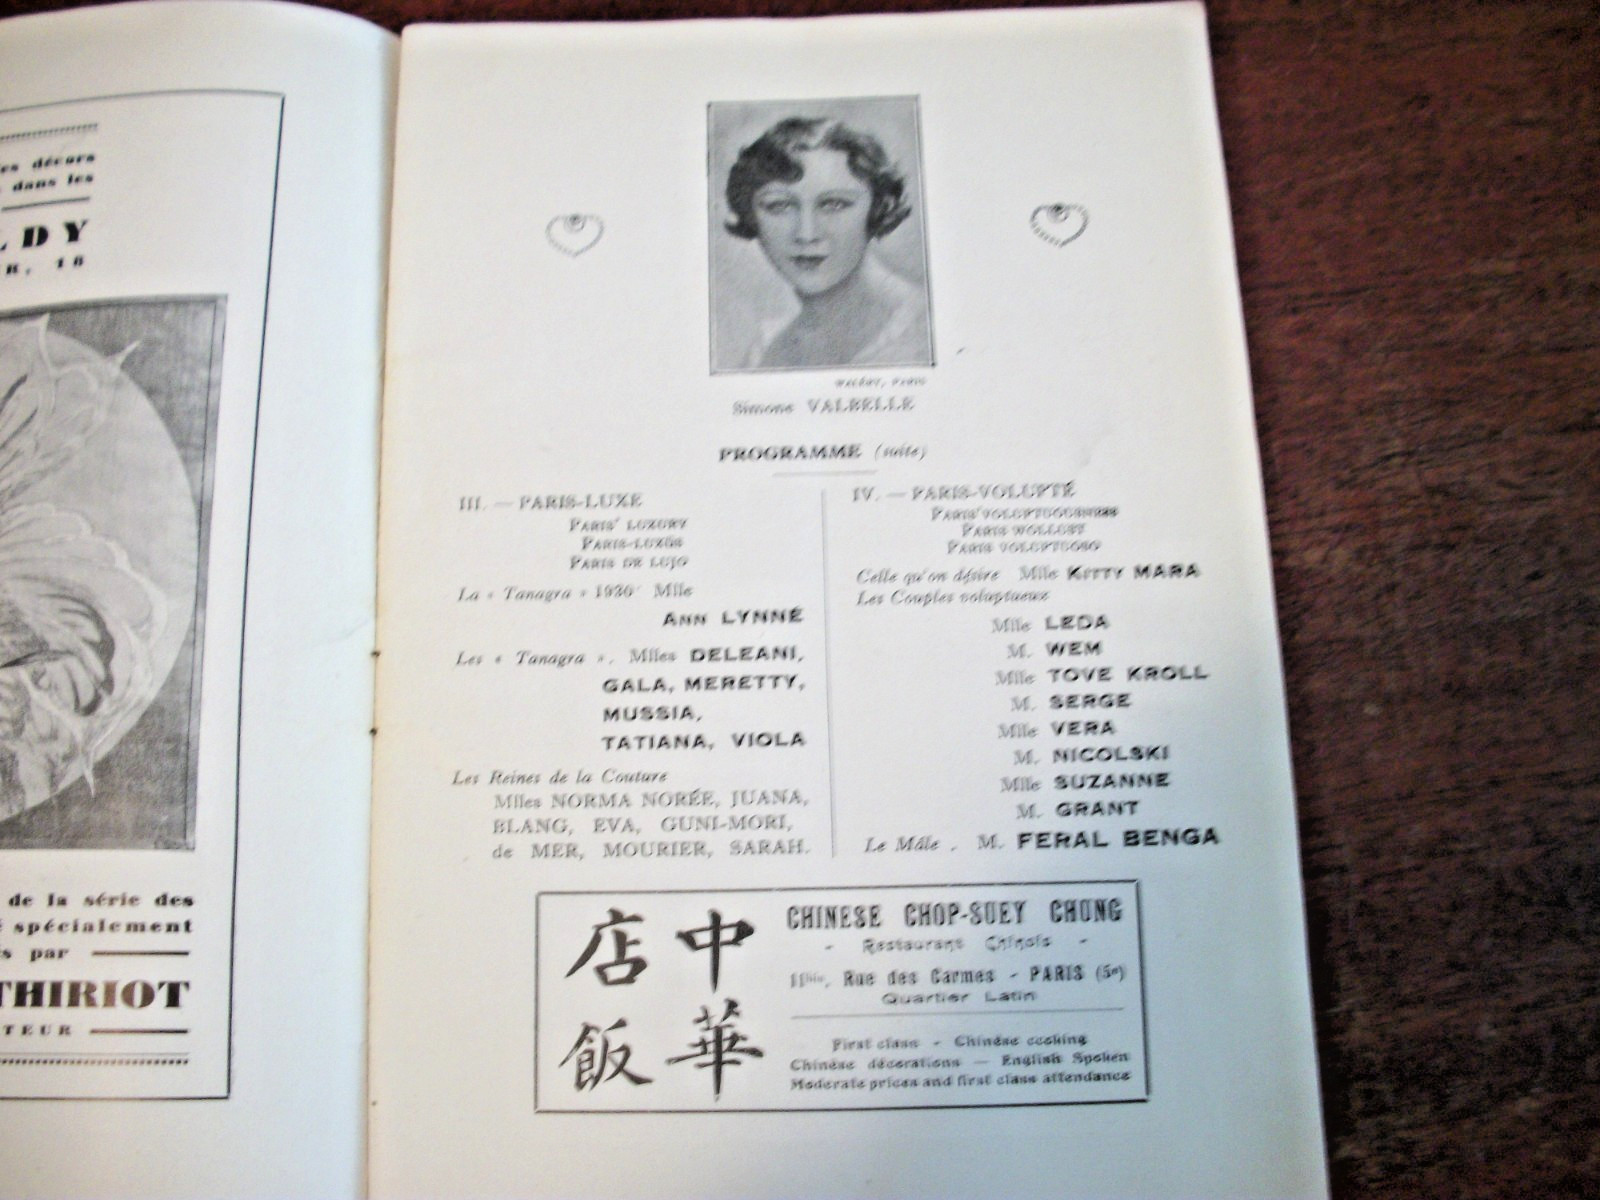 es décors
dans les
LDY
R, 16
de la série des
spécialement
s par
THIRIOT
TEUR
WALÉRY, PARIS
Simone VALBELLE
PROGRAMME (suite)
III. — PARIS-LUXE
PARIS' LUXURY
PARIS-LUXUS
PARIS DE LUJO
La « Tanagra » 1930 Mlle
ANN LYNNÉ
Les « Tanagra ». Mlles DELEANI,
GALA, MERETTY,
MUSSIA,
TATIANA, VIOLA
Les Reines de la Couture
Mlles NORMA NORÉE, JUANA,
BLANG, EVA, GUNI-MORI,
de MER, MOURIER, SARAH.
IV. — PARIS-VOLUPTÉ
PARIS' VOLUPTUOUSNESS
PARIS WOLLUST
PARIS VOLUPTUOSO
Celle qu'on désire Mlle KITTY MARA
Les Couples voluptueux
Mlle LEDA
M. WEM
Mlle TOVE KROLL
M. SERGE
Mlle VERA
M. NICOLSKI
Mlle SUZANNE
M. GRANT
Le Mâle . M. FERAL BENGA
中華
飯店
CHINESE CHOP-SUEY CHUNG
- Restaurant Chinois -
11bis, Rue des Carmes - PARIS (5e)
Quartier Latin
First class - Chinese cooking
Chinese décorations — English Spoken
Moderate prices and first class attendance